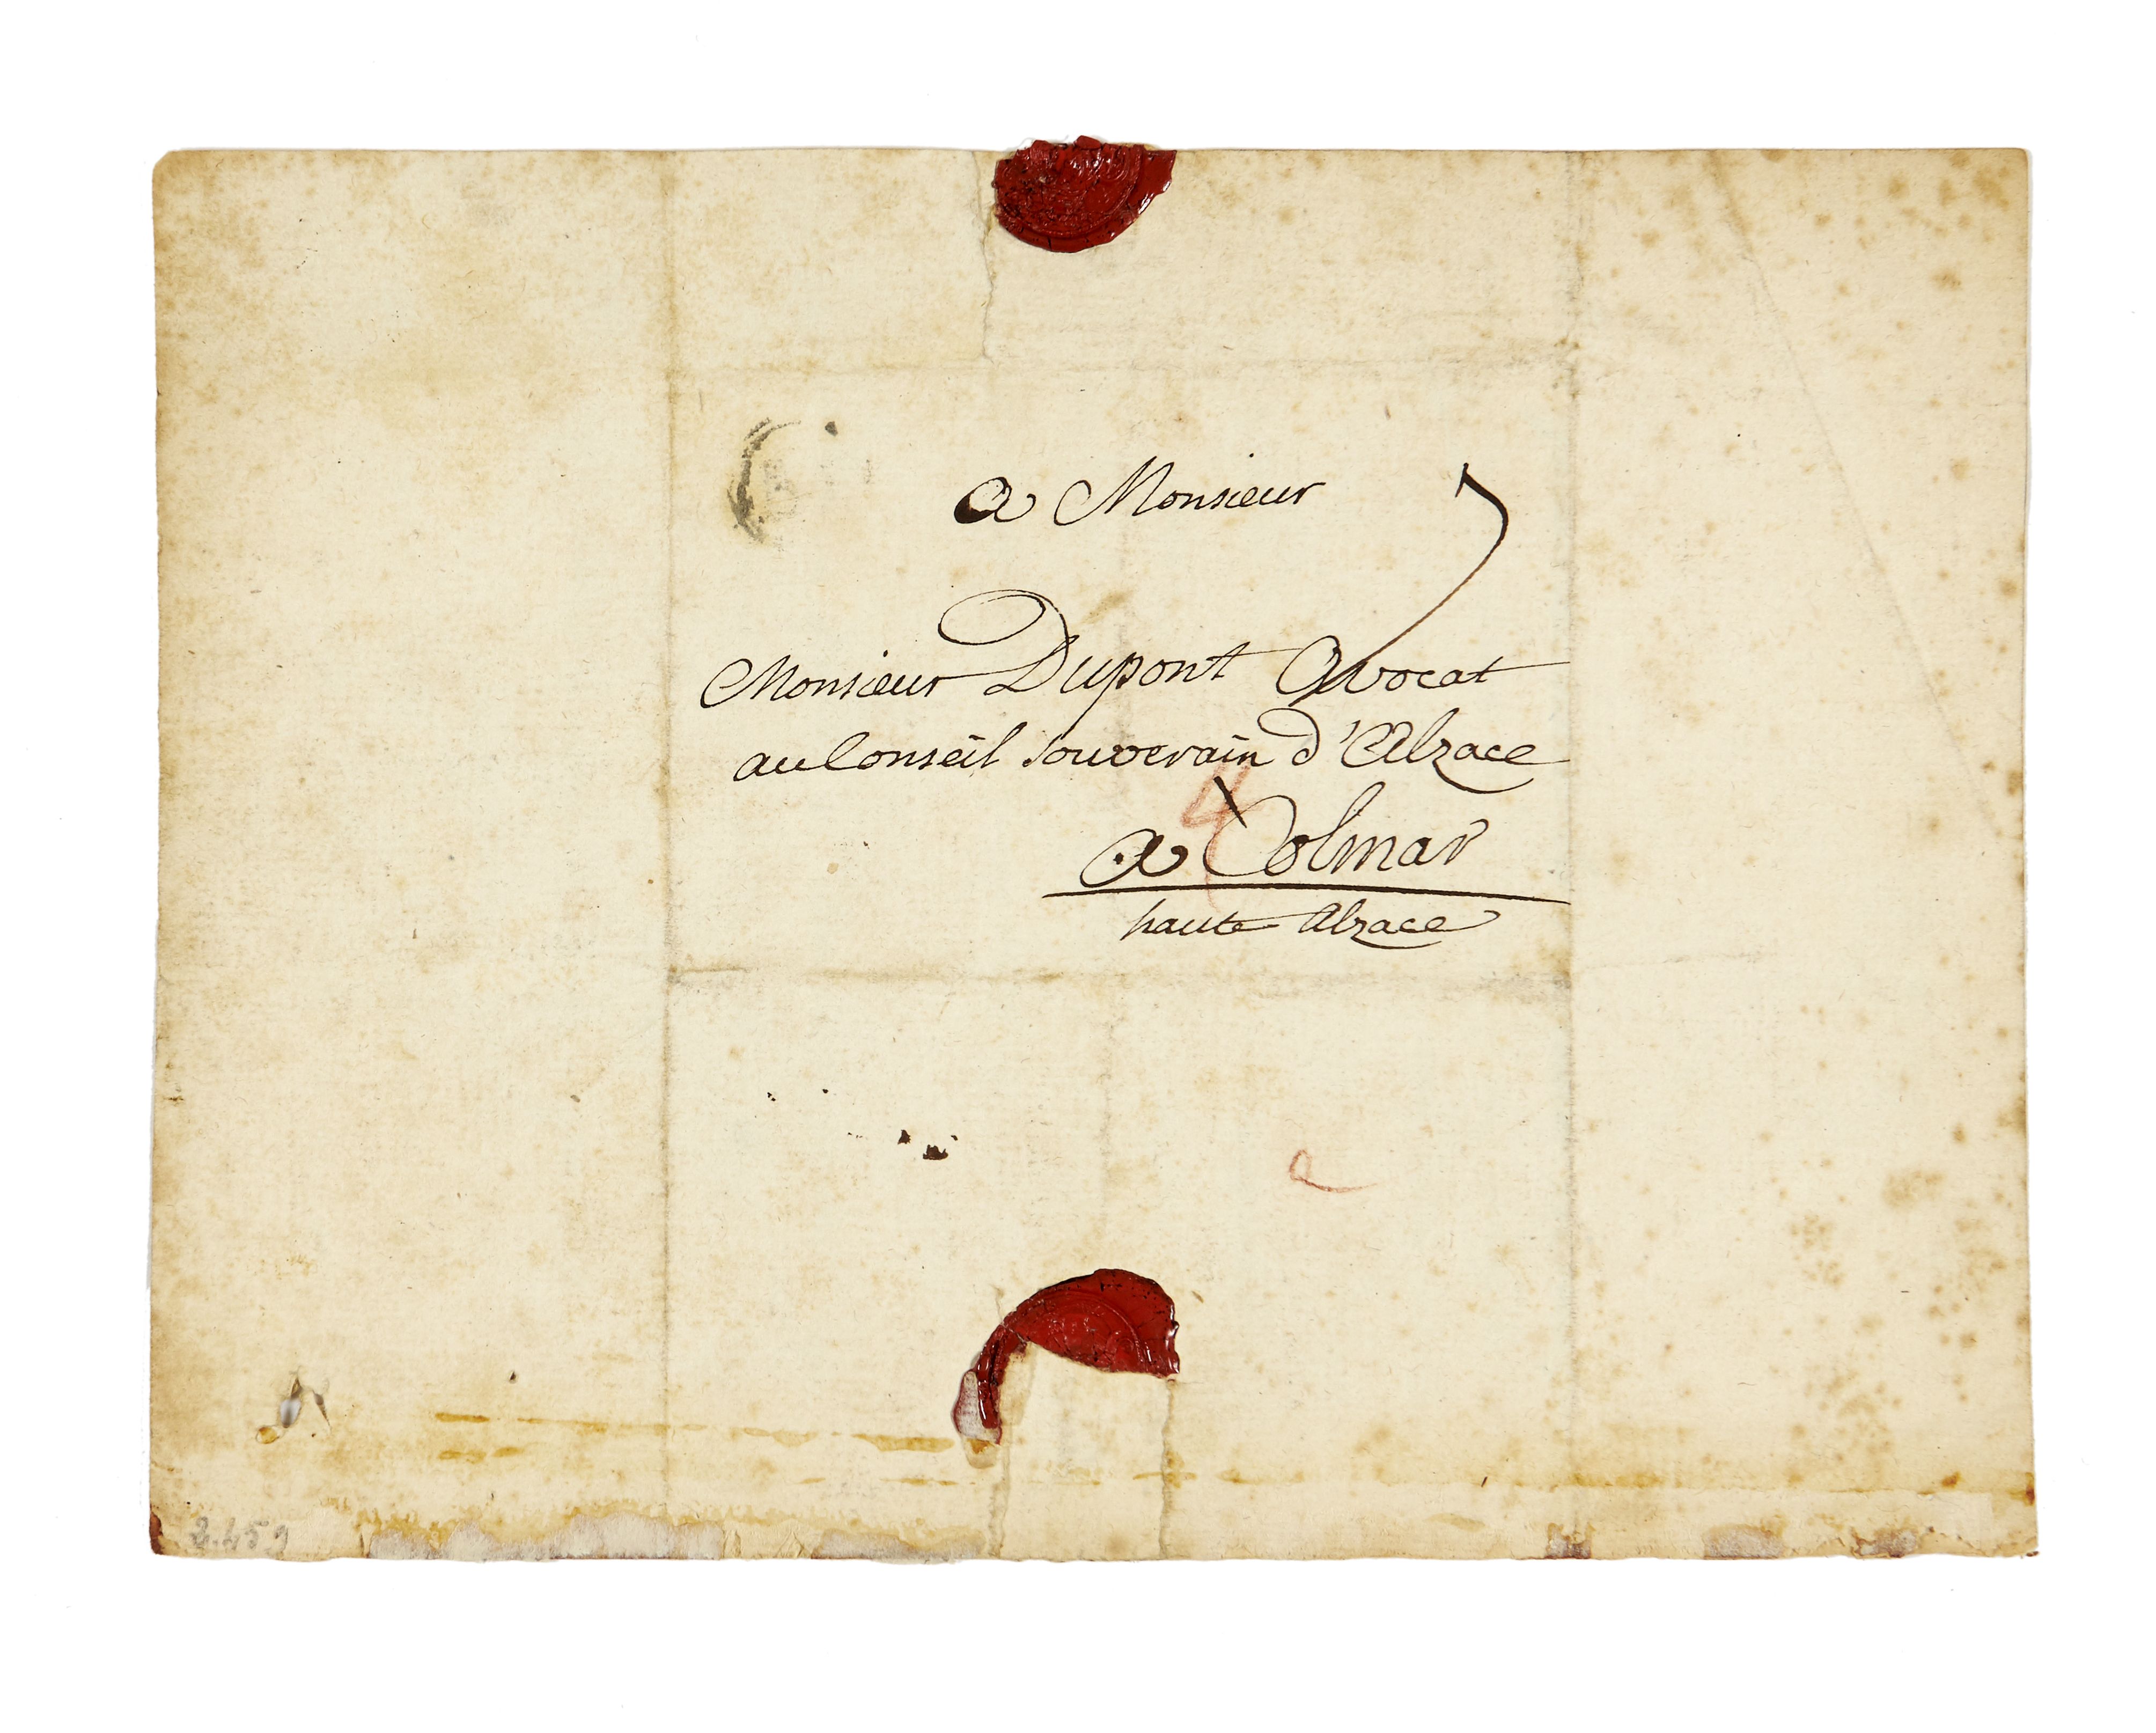 a Monsieur
Monsieur Dupont avocat
au Conseil souverain d'Alzace
4
a Colmar
haute Alzace
2.459